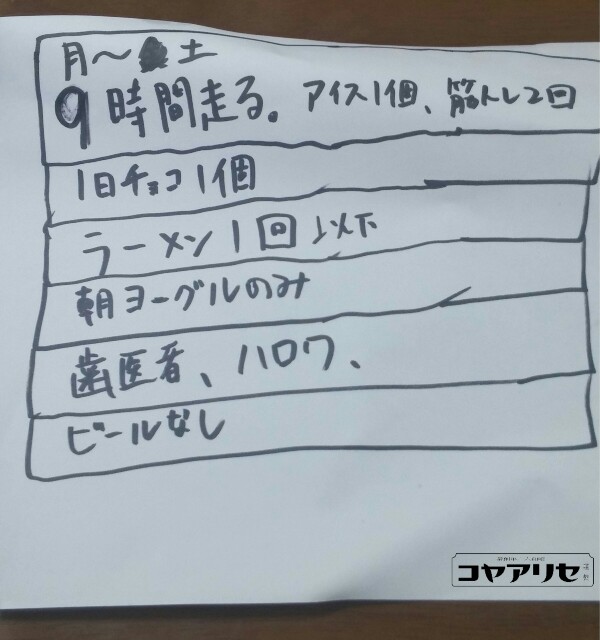 月〜土
9時間走る。アイス1個、筋トレ2回
1日チョコ1個
ラーメン1回以下
朝ヨーグルのみ
歯医者、ハロワ、
ビールなし
コヤアリセ